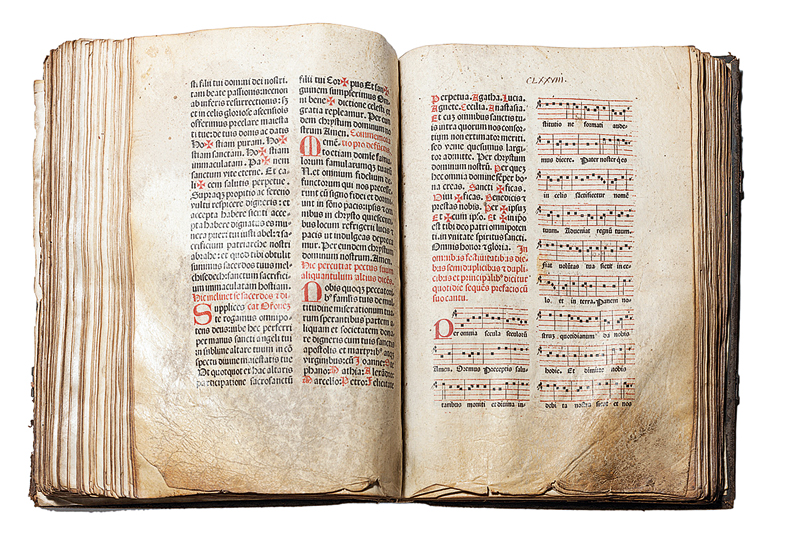 sti filii tui domini dei nostri.
tam beate passionis: necnon
ab inferis resurrectionis: sz
et in celis gloriose ascensiõis
offerimus preclare maiesta
ti tue: de tuis donis ac datis
Ho✠stiam puram. Ho✠
stiam sanctam. Ho✠stiam
immaculatam. Pa✠nem
sanctum vite eterne. Et ca-
li✠cem salutis perpetue.
Supra q̃ propitio ac sereno
vultu respicere digneris: et
accepta habere: sicuti acce-
pta habere dignatus es mu
nera pueri tui iusti abel: z sa-
crificium patriarche nostri
abrahe: et quod tibi obtulit
summus sacerdos tuus mel-
chisedech: sanctum sacrifici-
um immaculatam hostiam.
Hic inclinet se sacerdos z di-
Supplices cat Oronez
te rogamus omnipo-
tens deus: iube hec perferri
per manus sancti angeli tui
in sublime altare tuum in cõ
spectu divine maiestatis tue
Ut quotquot ex hac altaris
participatione sacrosanctũ
filii tui Cor✠pus Et san✠
guinem sumpserimus Om
ni bene✠dictione celesti et
gratia repleamur. Per eun
dem christum dominum no
strum Amen. Commemora
tio pro defunctis.
Memẽ-
to etiam domine famu-
lorum famularumq̃ tuarũ
N. et omnium fidelium de-
functorum qui nos precesse-
runt cũ signo fidei et dormi-
unt in sõno pacis: ipsis z om
nibus in christo quiescentib
locum refrigerii lucis et
pacis ut indulgeas depreca
mur. Per eundem christum
dominum nostrum. Amen.
Hic percutiat pectus suum
aliquantulum altius dicẽs.
Nobis quoq̃ peccatori
b⁹ famlis tuis de mul-
titudine miserationum tua
rum sperantibus partem a
liquam et societatem dona
re digneris cum tuis sanctis
apostolis et martyrib⁹ atq̃
virginibus: cũ Joanne: Ste
phano: Mathia: Alexãdro:
Marcello: Petro: Felicitate
CLXXVIII.
Perpetua. Agatha. Lucia.
Agnete. Cecilia. Anastasia.
Et cuz omnibus sanctis tu
is intra quorum nos consor-
tium non estimator meriti.
sed venie quesumus largi-
tor admitte. Per christum
dominum nostrũ. Per quez
hec omnia domine semper bo-
na creas. Sancti✠ficas.
Vivi✠ficas. Benedicis et
prestas nobis. Per✠ipsuz
Et✠cum ipso. Et✠in ipso
est tibi deo patri omnipoten
ti. in unitate spiritus sancti.
Omnis honor z gloria. In
omnibus festivitatibus die-
bus semiduplicibus z dupli-
cibus et principalib⁹ dicitur
quotidie seq̃ns prefacio cũ
suo cantu.
Per omnia secula seculorũ
Amen. Oremus Preceptis salu-
taribus moniti et divina in-
stitutio ne formati aude-
mus dicere. Pater noster q̃ es
in celis sãctificetur nomẽ
tuum. Adveniat regnũ tuum.
fiat volũtas tua sicut in ce-
lo. et in terra. Panem no-
struz quotidianum da nobis
hodie. Et dimitte nobis
debi ta nostra sicut et nos